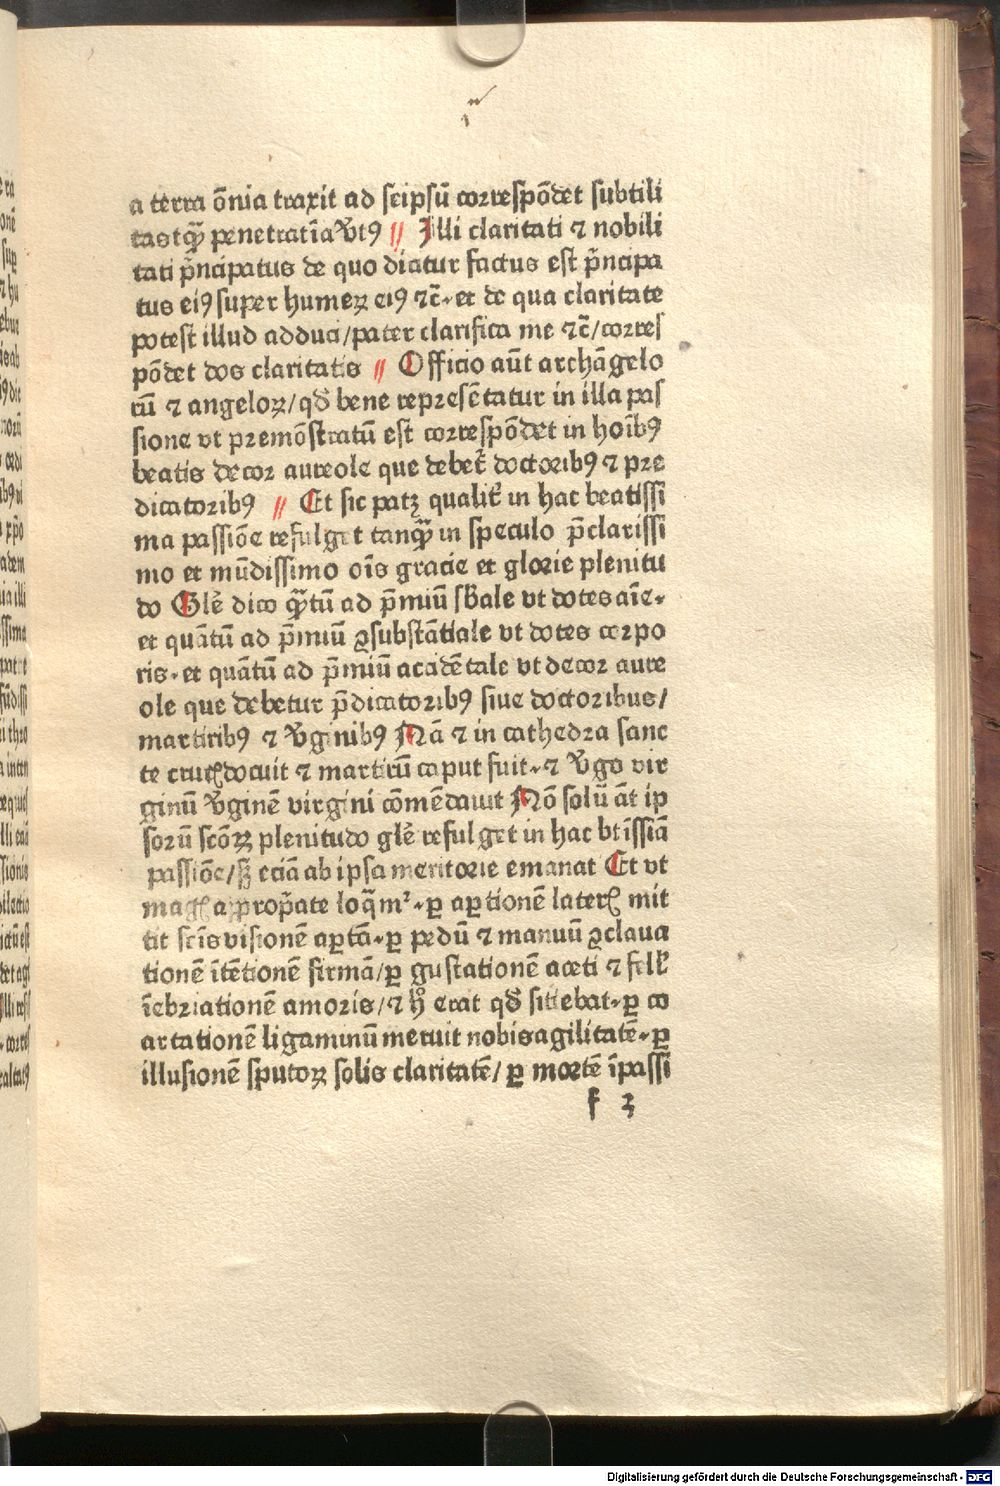 a terra õnia traxit ad seipsũ correspõdet subtili
tas tꝙ̃ penetratĩa v̾tꝰ // Illi claritati ⁊ nobili
tati p̃ncipatus de quo dicitur factus est p̃ncipa
tus eiꝰ super humeꝝ eiꝰ ⁊c̃· et de qua claritate
potest illud adduci/pater clarifica me ⁊c̃/corres
põdet dos claritatis // Officio aũt archãgelo
rũ ⁊ angeloꝝ/qd̃ bene represẽtatur in illa pas
sione vt premõstratũ est correspõdet in hoĩbꝰ
beatis decor aureole que debet̃ doctoribꝰ ⁊ pre
dicatoribꝰ // Et sic patꝫ qualit̃ in hac beatissi
ma passiõe refulget tanꝙ̃ in speculo p̃clarissi
mo et mũdissimo oĩs gracie et glorie plenitu
do Glẽ dico ꝙ̃tũ ad p̃miũ sb̃ale vt dotes aĩe·
et quãtũ ad p̃miũ ꝯsubstãtiale vt dotes corpo
ris· et quãtũ ad p̃miũ acidẽtale vt decor aure
ole que debetur p̃dicatoribꝰ siue doctoribus/
martiribꝰ ⁊ v̾ginibꝰ Nã ⁊ in cathedra sanc
te crucꝭ docuit ⁊ martirũ caput fuit· ⁊ v̾go vir
ginũ v̾ginẽ virgini cõmẽdauit Nõ solũ ãt ip
sorũ scõꝝ plenitudo glẽ refulget in hac bt̃issiã
passiõe/sꝫ eciã ab ipsa meritorie emanat Et vt
magꝭ apropr̃ate loq̃mr̃· ꝑ apertionẽ laterꝭ mit
tit scĩs visionẽ aꝑtã· ꝑ pedũ ⁊ manuũ ꝯclaua
tionẽ ĩtẽtionẽ firmã/ꝑ gustationẽ aceti ⁊ fell̃
ĩebriationẽ amoris/⁊ hͦ erat qd̃ sitiebat· ꝑ co
artationẽ ligaminũ meruit nobis agilitatẽ· ꝑ
illusionẽ sputoꝝ solis claritatẽ/ ꝑ mortẽ ĩpassi
f 3
Digitalisierung gefördert durch die Deutsche Forschungsgemeinschaft - DFG